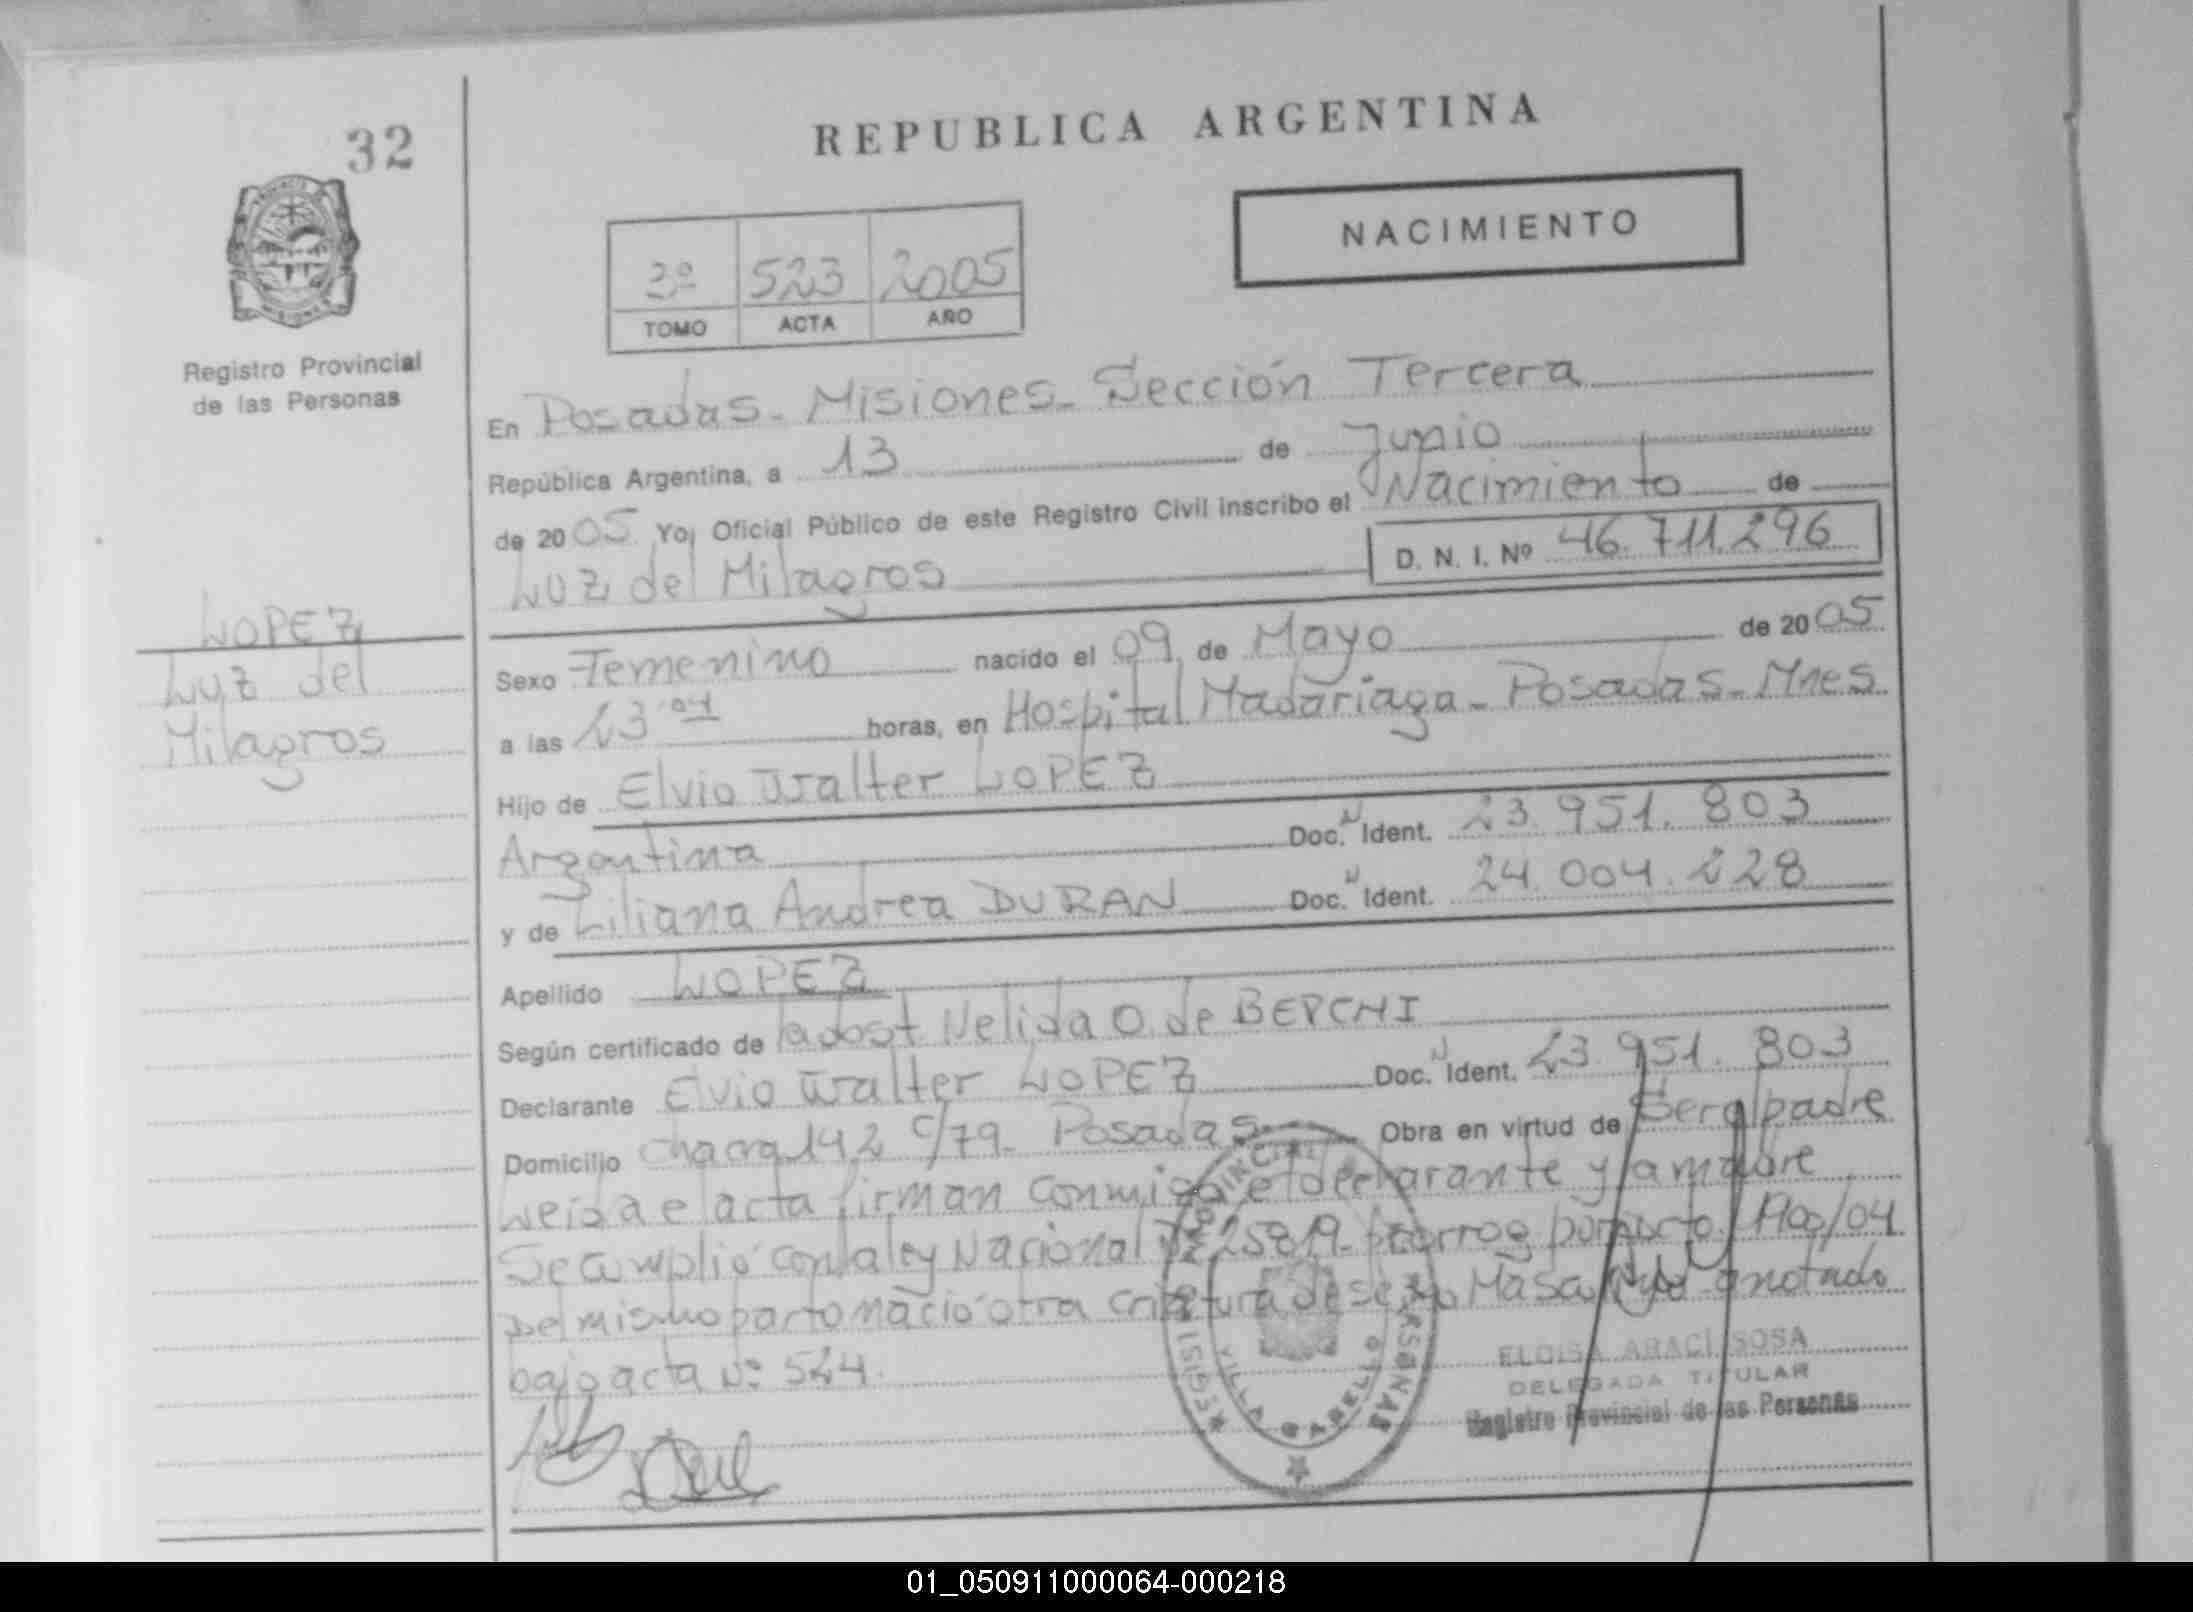 32
REPUBLICA ARGENTINA
NACIMIENTO
523 2005
TOMO ACTA AÑO
Registro Provincial
de las Personas
MISIONES
En Posadas - Misiones - Sección Tercera
República Argentina, a 13 de Junio
de 2005 Yo, Oficial Público de este Registro Civil inscribo el Nacimiento de
Luz del Milagros
D. N. I. Nº 46.711.296
LOPEZ
Luz del
Milagros
Sexo Femenino nacido el 09 de Mayo de 2005
a las 23 04 horas, en Hospital Madariaga - Posadas - Mnes
Hijo de Elvio Walter LOPEZ
Argentina Doc. N Ident. 23.951.803
y de Liliana Andrea DURAN Doc. N Ident. 24.004.228
Apellido LOPEZ
Según certificado de la obst Nelida O. de BERCHI
Declarante Elvio Walter LOPEZ Doc. N Ident. 23.951.803
Domicilio Chacra 142 C/79 - Posadas Obra en virtud de Ser el padre
Leida el acta firman conmigo el declarante y la madre
Se cumplió con la ley Nacional Nº 25819 - prorrog por Dcto. /04
Del mismo parto nació otra criatura de sexo anotado
bajo acta Nº 524.
REGISTRO PROVINCIAL DE LAS PERSONAS
VILLA CABELLO
ELOISA ARACI SOSA
DELEGADA TITULAR
Registro Provincial de las Personas
01_050911000064-000218